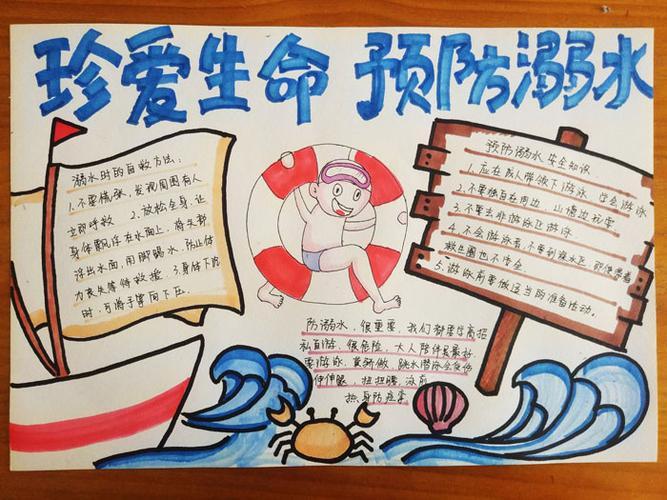 珍爱生命 预防溺水
溺水时的自救方法:
1.不要慌张,发现周围有人
立即呼救 2.放松全身,让
身体飘浮在水面上,将头部
浮出水面,用脚踢水,防止体
力丧失等待救援 3.身体下沉
时,可将手掌向下压.
预防溺水安全知识
1.应在成人带领下游泳 学会游泳
2.不要独自在河边 山塘边玩耍
3.不要去非游泳区游泳
4.不会游泳者,不要到深水区 即使带着
救生圈也不安全.
5.游泳前要做适当的准备活动.
防溺水,很重要,我们都要学高招
私自游,很危险,大人陪伴是最好
要游泳,莫骄傲
伸伸腿,扭扭腰,泳前
热身防痉挛